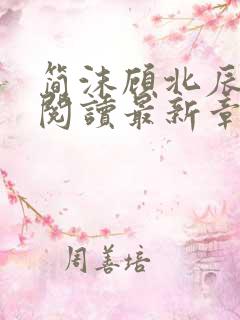 简沫顾北辰
閱讀最新章
周善培